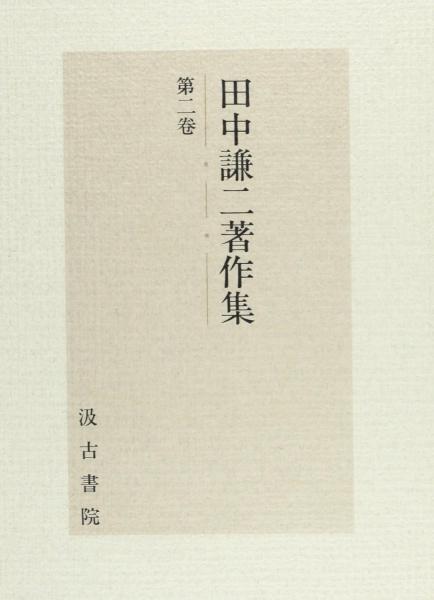 田中謙二著作集
第二卷
汲古書院